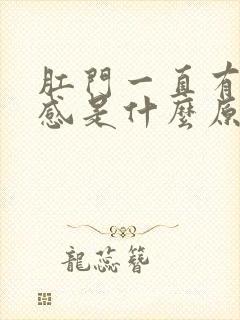 肛門一直有
感是什麼原
龍蕊簪